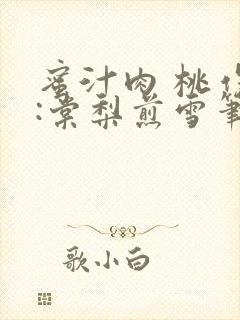 蜜汁肉桃作
:棠梨煎雪笔
歌小白